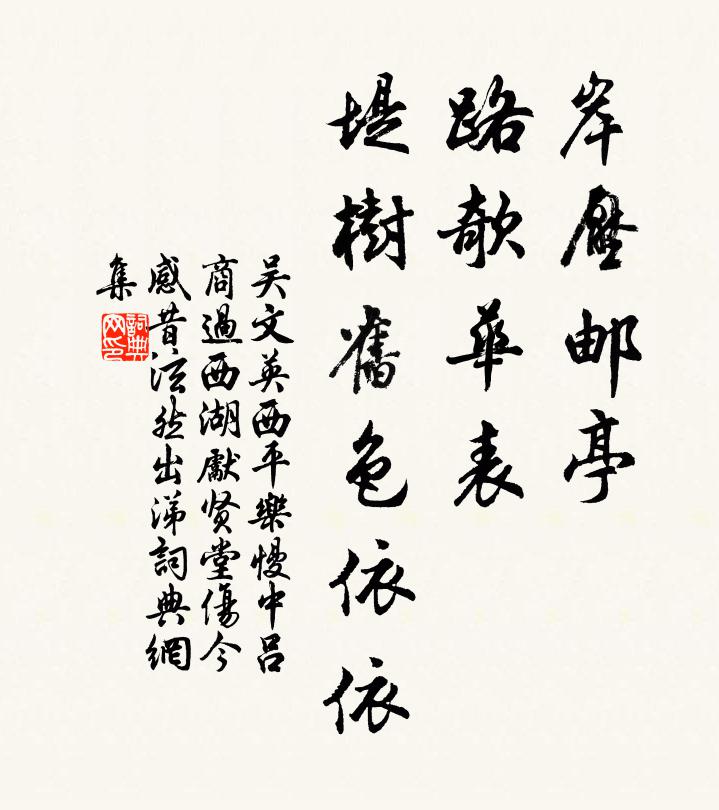 岸壓邮亭
路欹華表
堤樹舊色依依
吴文英西平樂慢中吕
商過西湖獻贤堂傷今
感昔泫然出涕詞典網
集
詞典
网印